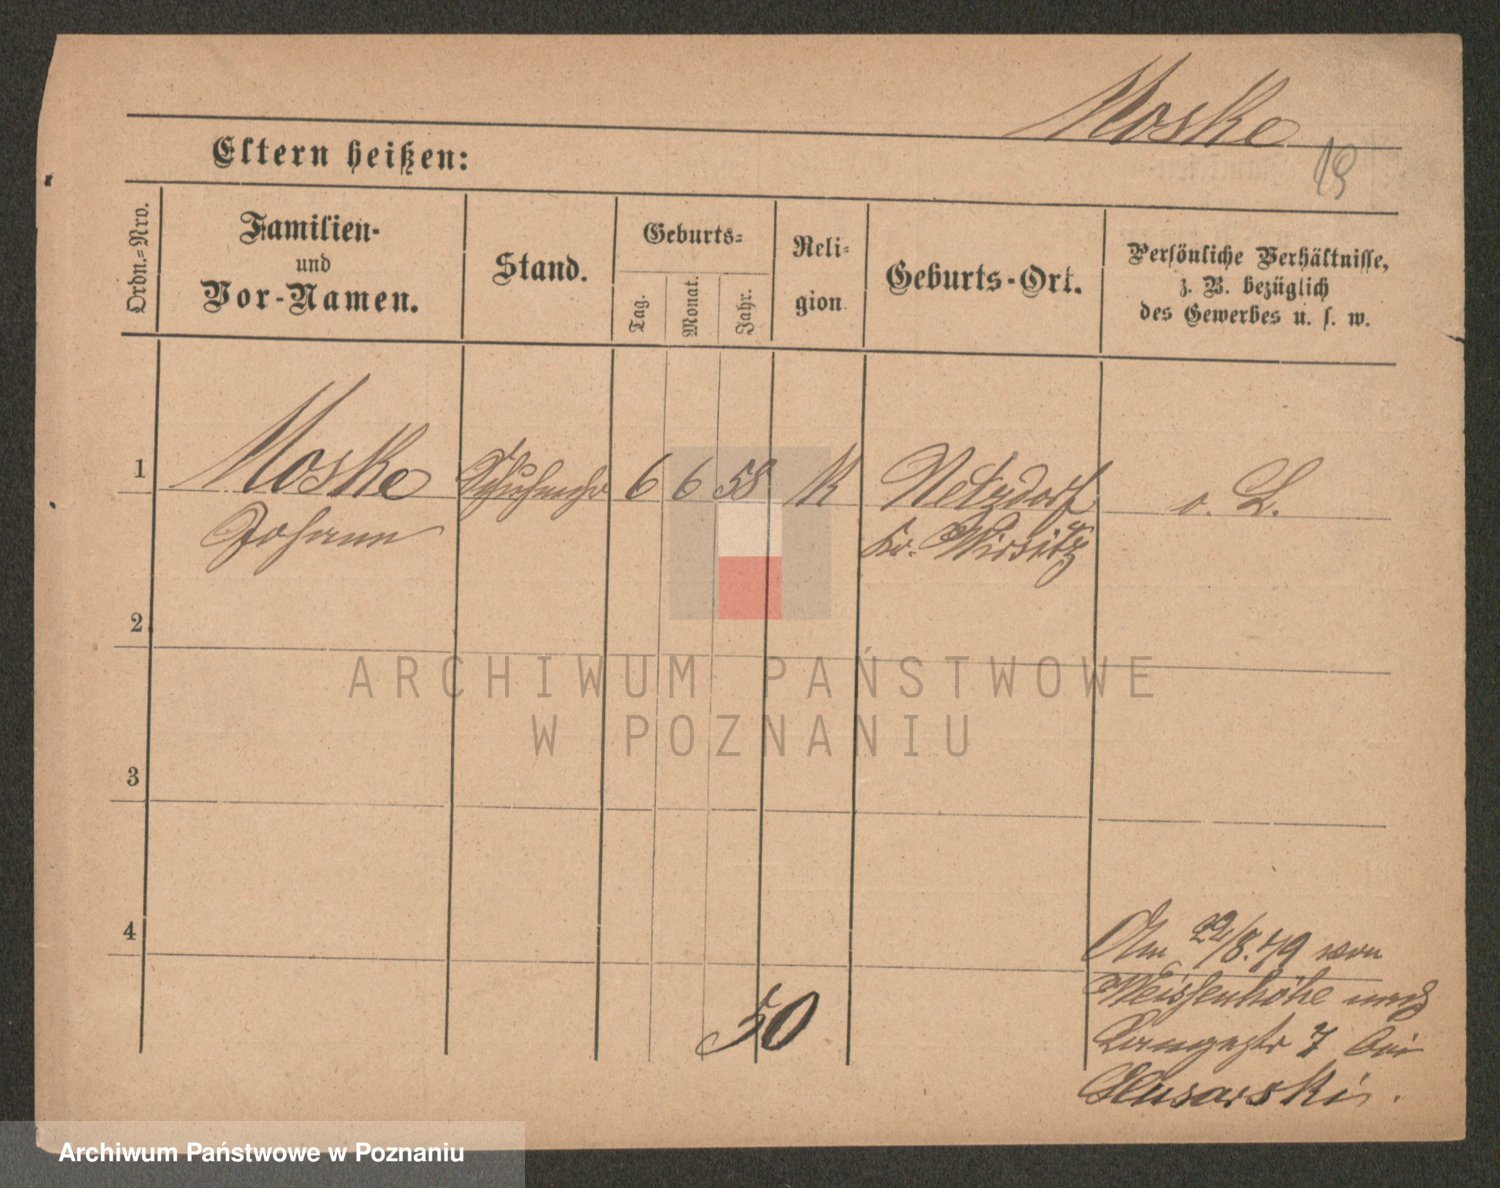 Moske
19
Eltern heißen:
Ordn.=Nro.
Familien-
und
Vor-Namen.
Stand.
Geburts=
Tag.
Monat.
Jahr.
Reli-
gion
Geburts-Ort.
Persönliche Verhältnisse,
z. B. bezüglich
des Gewerbes u. s. w.
1
Moske
Johann
6 6 58
K
Netzdorf
Kr. Wirsitz
o. L.
2.
3
4
Am 22/8.79 von
Weissenhöhe nach
Langestr 7 bei
Husarski.
50
ARCHIWUM PAŃSTWOWE
W POZNANIU
Archiwum Państwowe w Poznaniu